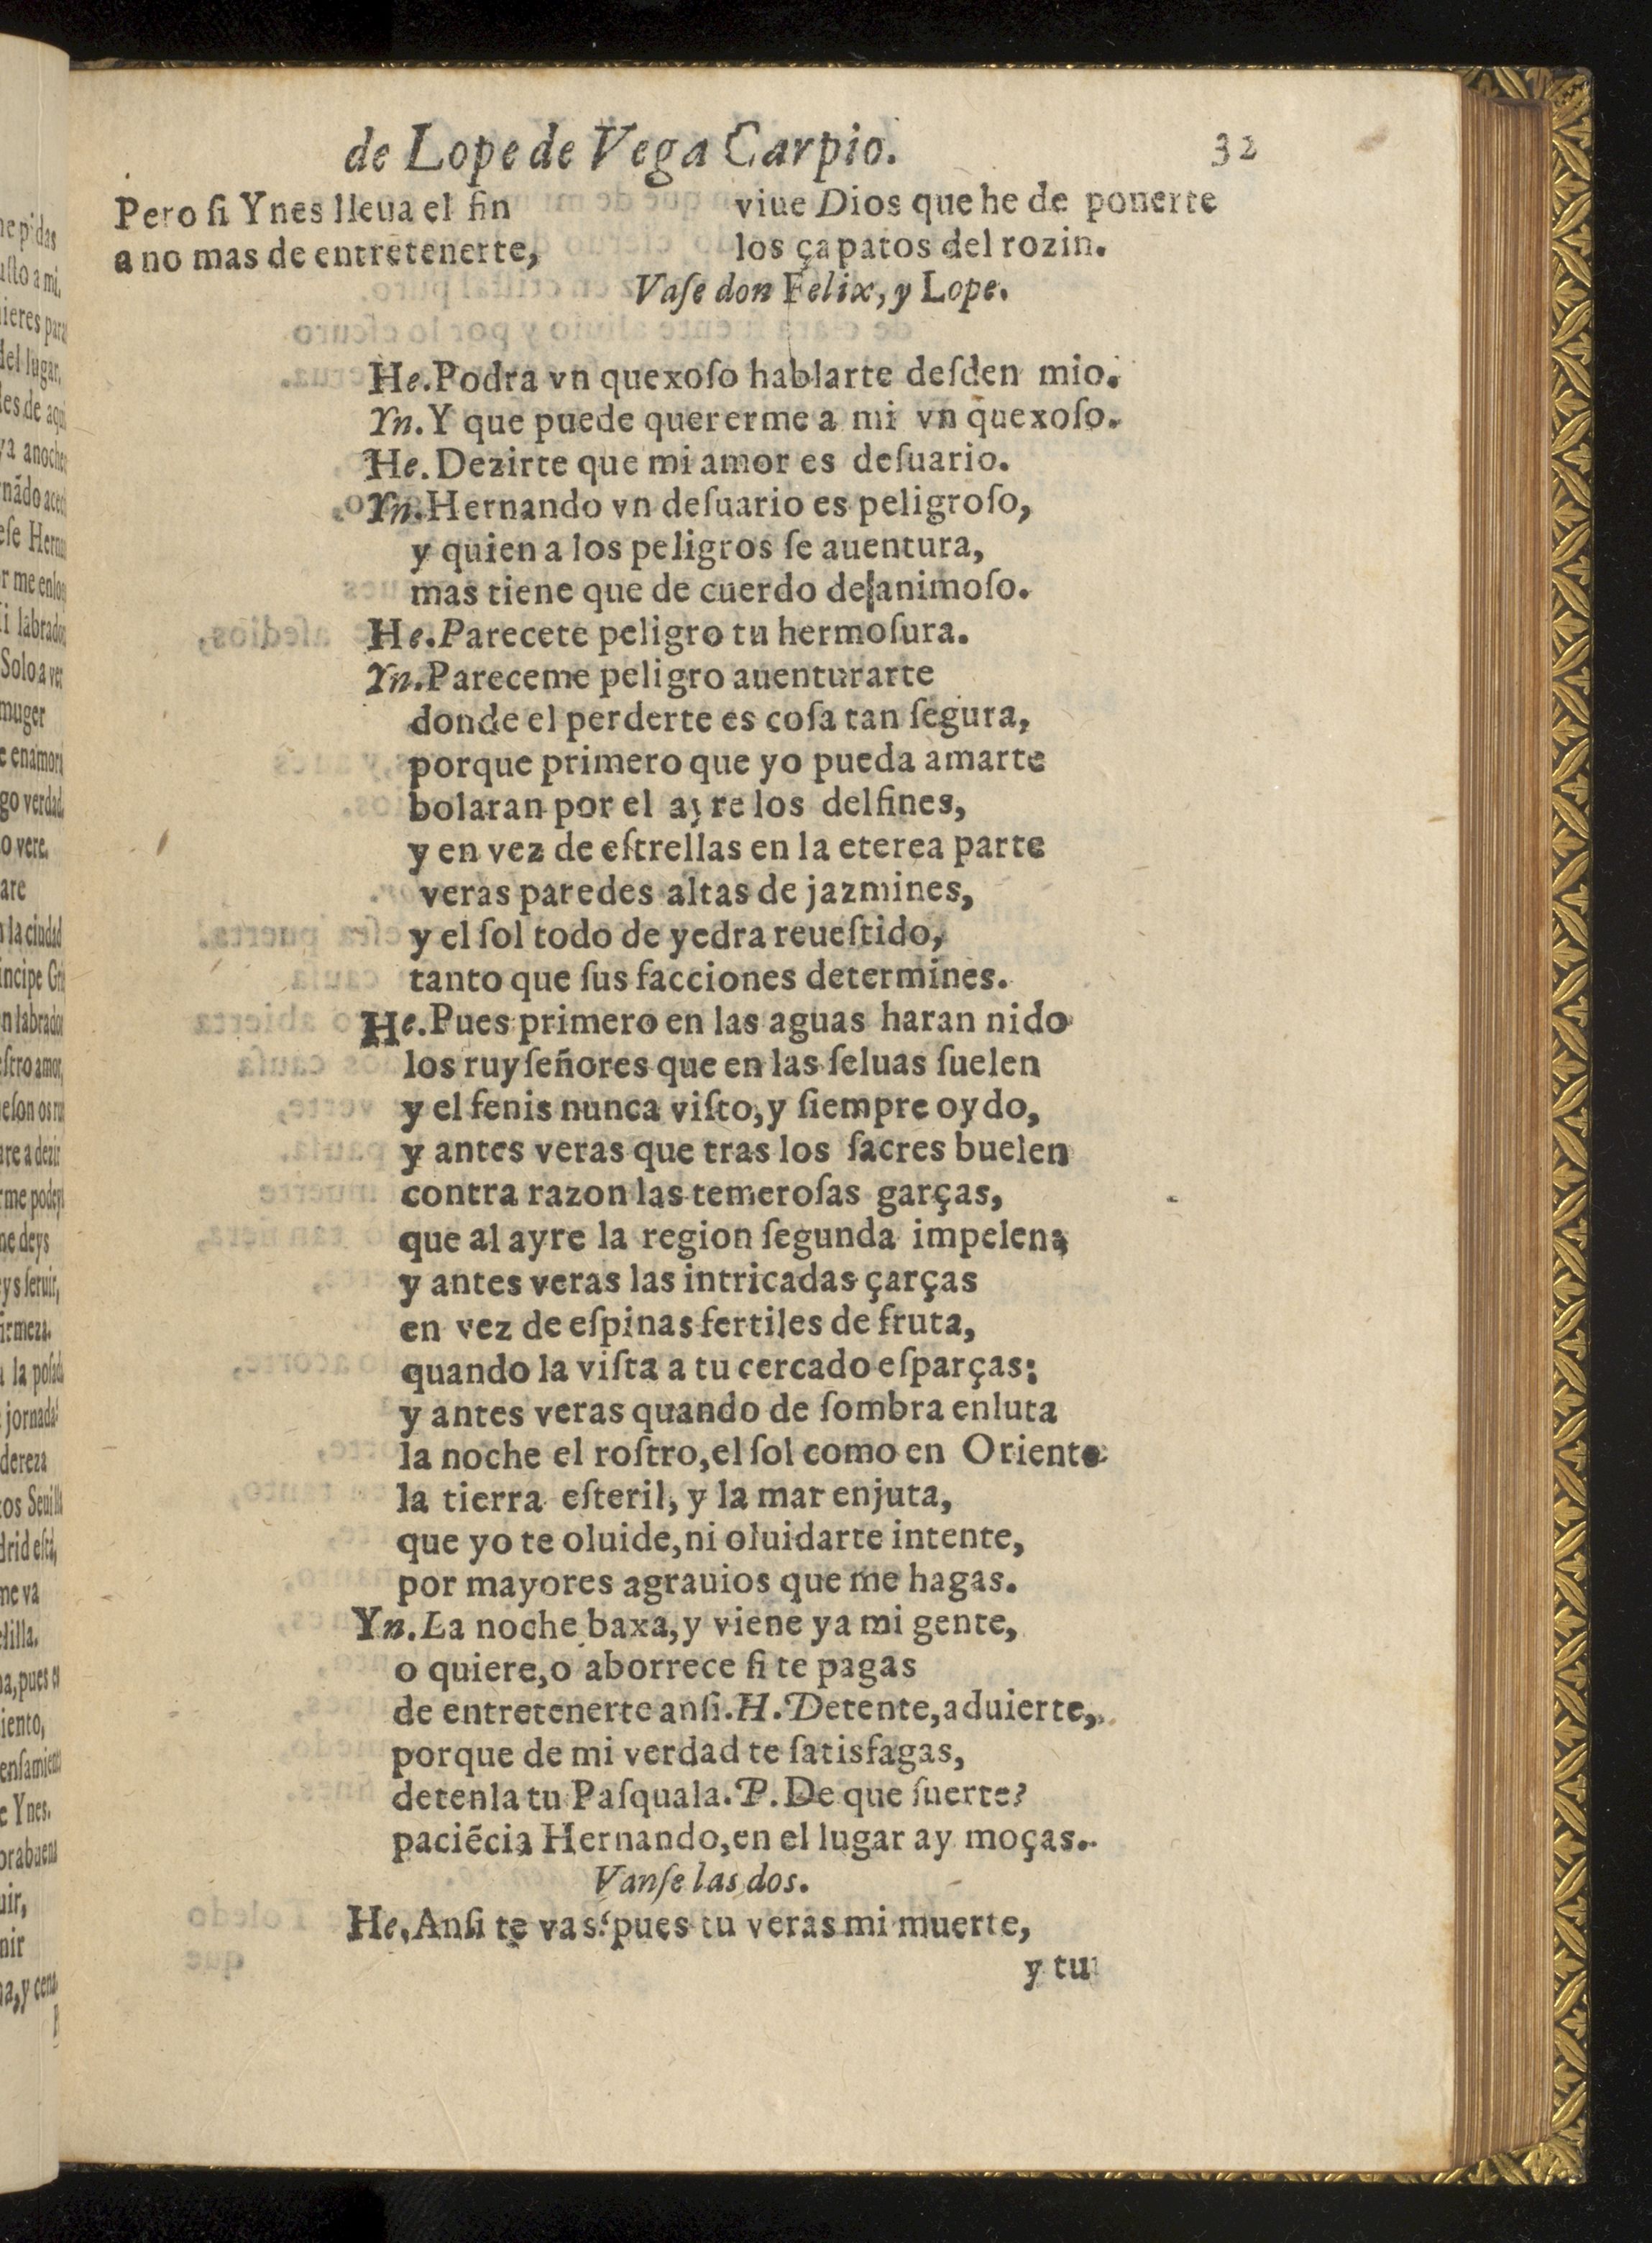 de Lope de Vega Carpio. 32
Pero ſi Ynes lleua el fin
a no mas de entretenerte,
viue Dios que he de ponerte
los çapatos del rozin.
Vaſe don Felix, y Lope.
He. Podra vn quexoſo hablarte deſden mio.
Yn. Y que puede quererme a mi vn quexoſo.
He. Dezirte que mi amor es deſuario.
Yn. Hernando vn deſuario es peligroſo,
y quien a los peligros ſe auentura,
mas tiene que de cuerdo de animoſo.
He. Parecete peligro tu hermoſura.
Yn. Pareceme peligro auenturarte
donde el perderte es coſa tan ſegura,
porque primero que yo pueda amarte
bolaran por el ayre los delfines,
y en vez de eſtrellas en la eterea parte
veras paredes altas de jazmines,
y el ſol todo de yedra reueſtido,
tanto que ſus facciones determines.
He. Pues primero en las aguas haran nido
los ruyſeñores que en las ſeluas ſuelen
y el fenis nunca viſto, y ſiempre oydo,
y antes veras que tras los ſacres buelen
contra razon las temeroſas garças,
que al ayre la region ſegunda impelen,
y antes veras las intricadas çarças
en vez de eſpinas fertiles de fruta,
quando la viſta a tu cercado eſparças:
y antes veras quando de ſombra enluta
la noche el roſtro, el ſol como en Oriente
la tierra eſteril, y la mar enjuta,
que yo te oluide, ni oluidarte intente,
por mayores agrauios que me hagas.
Yn. La noche baxa, y viene ya mi gente,
o quiere, o aborrece ſi te pagas
de entretenerte anſi. H. Detente, aduierte,
porque de mi verdad te ſatisfagas,
detenla tu Paſquala. P. De que ſuerte?
paciẽcia Hernando, en el lugar ay moças.
Vanſe las dos.
He. Anſi te vas? pues tu veras mi muerte,
y tu